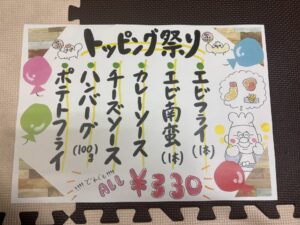 トッピング祭り
エビフライ(1本)
エビ南蛮(1本)
カレーソース
チーズソース
ハンバーグ(100g)
ポテトフライ
!!!!どれでも!!!!
ALL ¥330